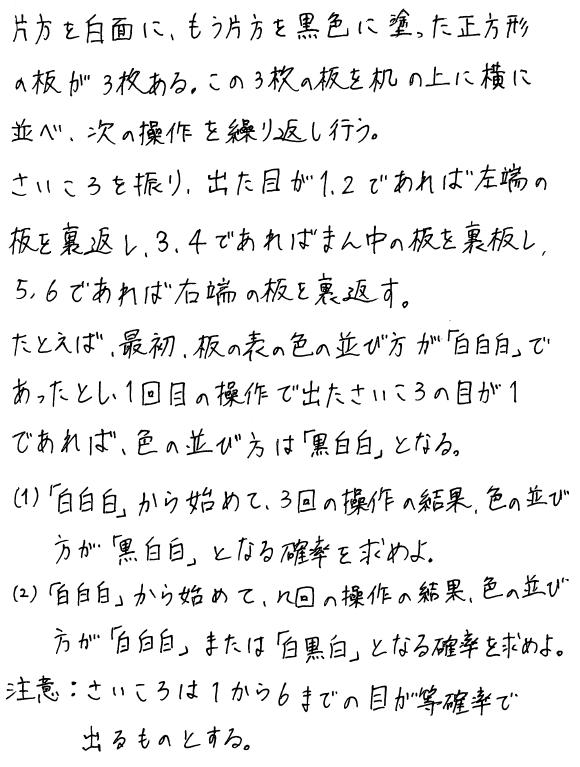 片方を白面に、もう片方を黒色に塗った正方形
の板が3枚ある。この3枚の板を机の上に横に
並べ、次の操作を繰り返し行う。
さいころを振り、出た目が1,2であれば左端の
板を裏返し、3,4であればまん中の板を裏板し、
5,6であれば右端の板を裏返す。
たとえば、最初、板の表の色の並び方が「白白白」で
あったとし、1回目の操作で出たさいころの目が1
であれば、色の並び方は「黒白白」となる。
(1)「白白白」から始めて、3回の操作の結果、色の並び
方が「黒白白」となる確率を求めよ。
(2)「白白白」から始めて、n回の操作の結果、色の並び
方が「白白白」または「白黒白」となる確率を求めよ。
注意:さいころは1から6までの目が等確率で
出るものとする。